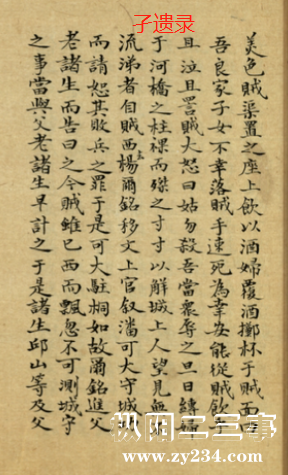 子遗录
美色賊渠置之座上飲以酒婦覆酒擲杯于賊面曰
吾良家子女不幸落賊手速死為幸安能從賊飲乎
且泣且詈賊大怒曰姑勿殺吾當衆辱之旦日縛婦
于河橋之柱裸而磔之寸寸以解城上人望見無不
流涕者自賊西楊爾銘移文上官叙潘可大守城功
而請恕其敗兵之罪于是可大駐桐如故爾銘進父
老諸生而告曰之今賊雖已西而飄忽不可測城守
之事當與父老諸生早計之于是諸生邱山等及父
枞阳二三事
www.zy234.com